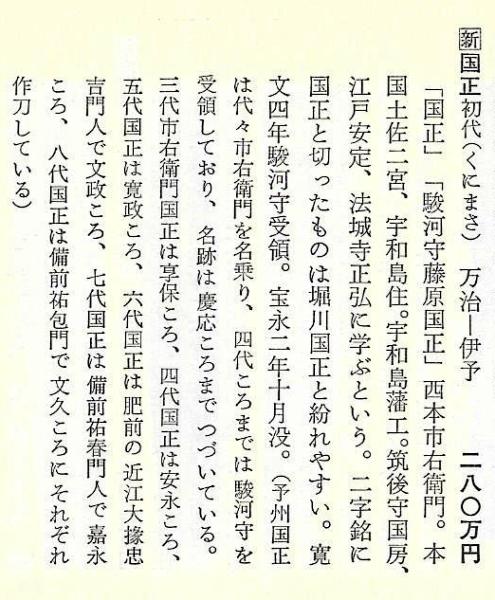 新 国正 初代(くにまさ) 万治―伊予 二八〇万円
「国正」「駿河守藤原国正」西本市右衛門。本
国土佐二宮、宇和島住。宇和島藩工。筑後守国房、
江戸安定、法城寺正弘に学ぶという。二字銘に
国正と切ったものは堀川国正と紛れやすい。寛
文四年駿河守受領。宝永二年十月没。(予州国正
は代々市右衛門を名乗り、四代ころまでは駿河守を
受領しており、名跡は慶応ころまでつづいている。
三代市右衛門国正は享保ころ、四代国正は安永ころ、
五代国正は寛政ころ、六代国正は肥前の近江大掾忠
吉門人で文政ころ、七代国正は備前祐春門人で嘉永
ころ、八代国正は備前祐包門で文久ころにそれぞれ
作刀している)